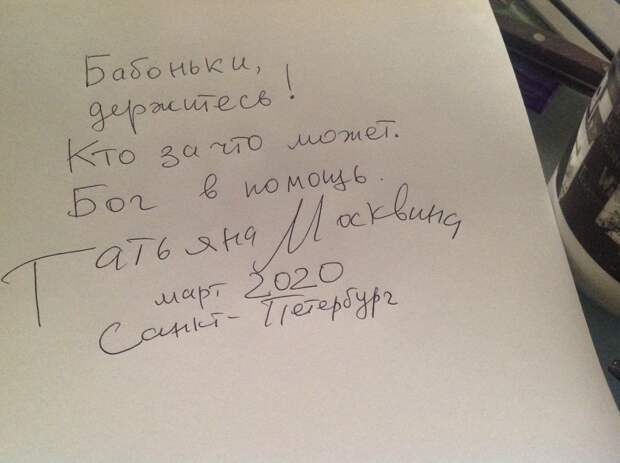 Бабоньки,
держитесь!
Кто за что может.
Бог в помощь.
Татьяна Москвина
март 2020
Санкт-Петербург